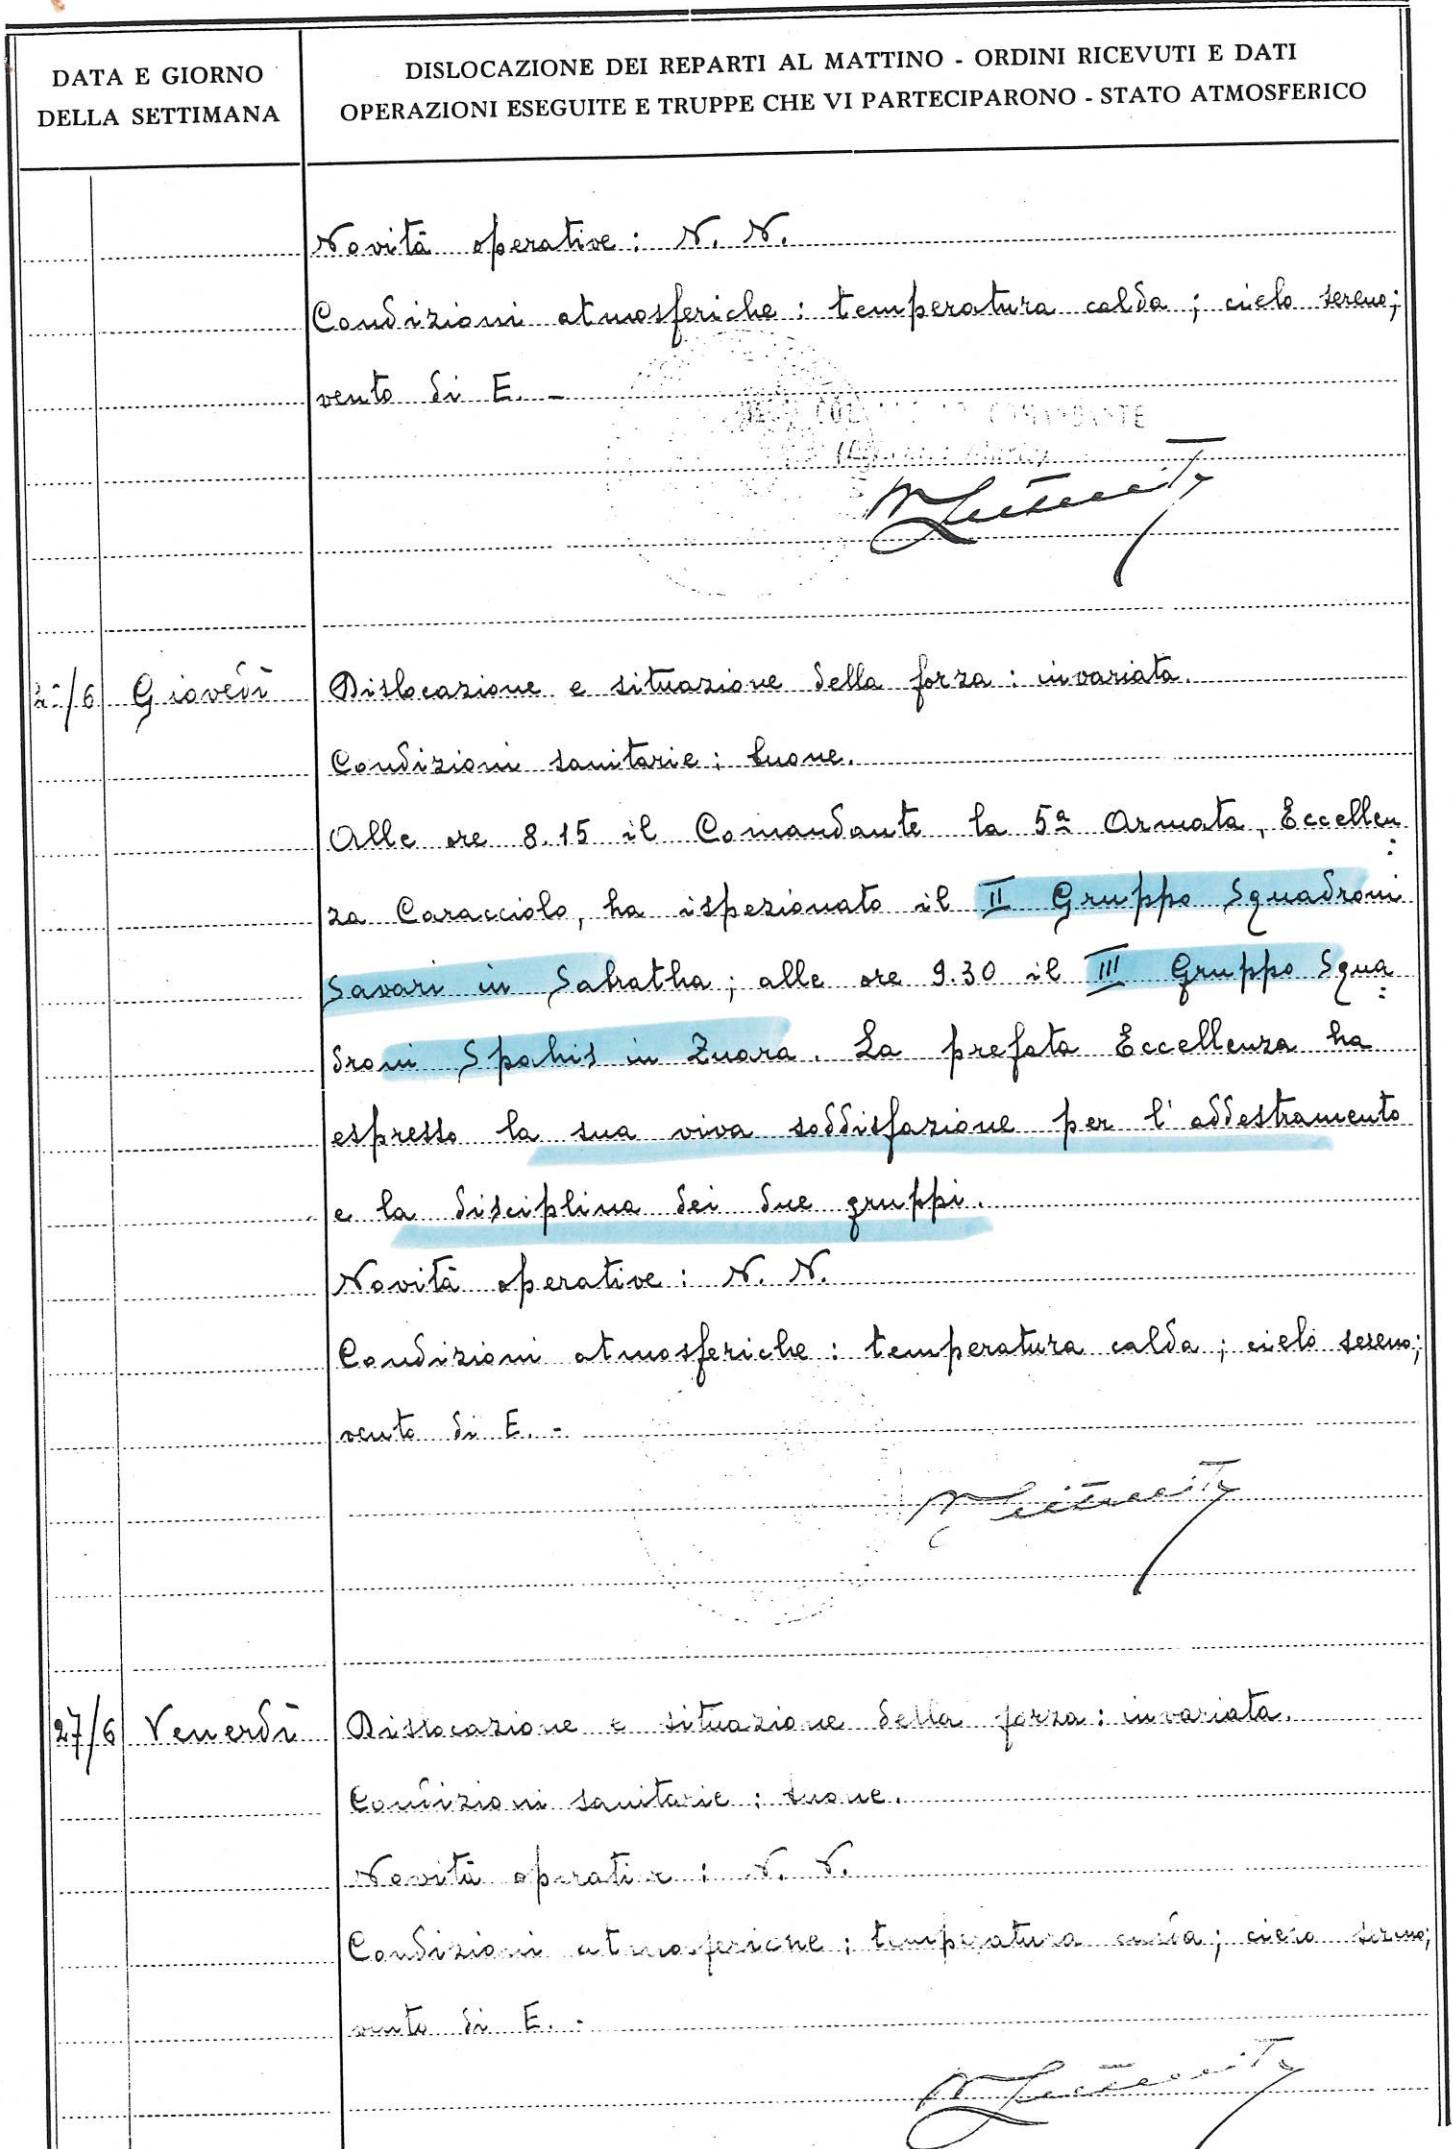 DATA E GIORNO
DELLA SETTIMANA
DISLOCAZIONE DEI REPARTI AL MATTINO - ORDINI RICEVUTI E DATI
OPERAZIONI ESEGUITE E TRUPPE CHE VI PARTECIPARONO - STATO ATMOSFERICO
Novità operative: N. N.
Condizioni atmosferiche: temperatura calda; cielo sereno;
vento di E. -
COMANDANTE
/6 Giovedì Dislocazione e situazione della forza: invariata.
Condizioni sanitarie: buone.
Alle ore 8.15 il Comandante la 5ª Armata, Eccellen:
za Caracciolo, ha ispezionato il II Gruppo Squadroni
Savari in Sabratha; alle ore 9.30 il III Gruppo Squa:
droni Spahis in Zuara. La prefata Eccellenza ha
espresso la sua viva soddisfazione per l'addestramento
e la disciplina dei due gruppi.
Novità operative: N. N.
Condizioni atmosferiche: temperatura calda; cielo sereno;
vento di E. -
27/6 Venerdì Dislocazione e situazione della forza: invariata.
Condizioni sanitarie: buone.
Novità operative: N. N.
Condizioni atmosferiche: temperatura calda; cielo sereno;
vento di E. -